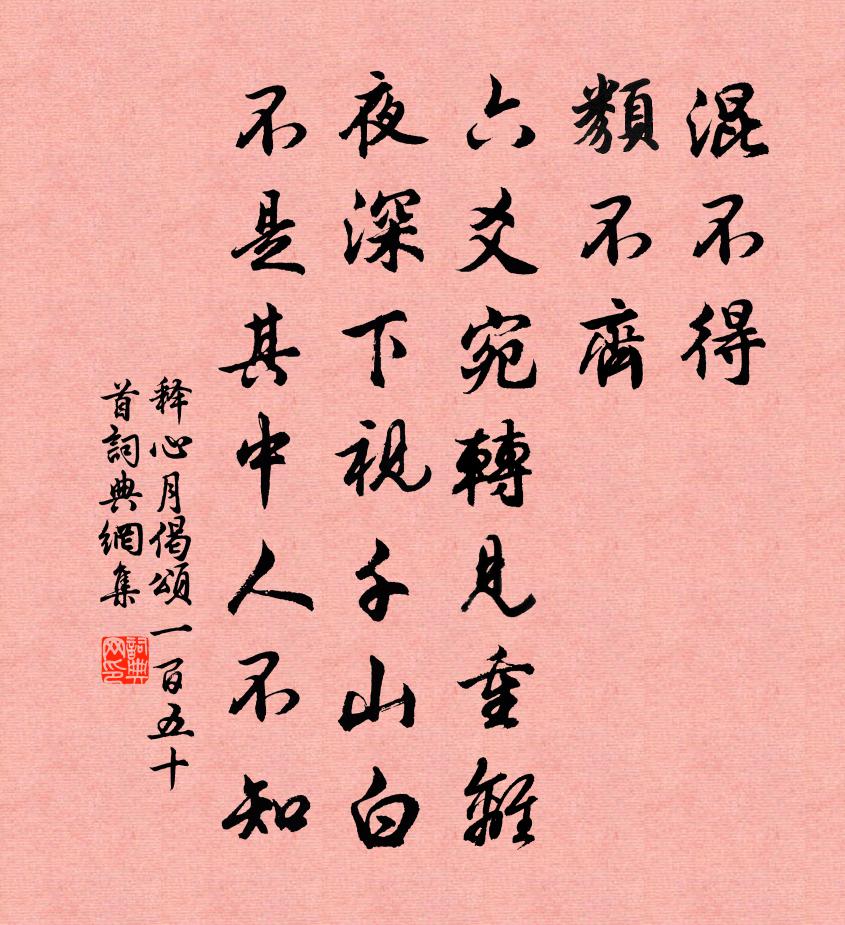 混不得
類不齊
六爻宛轉見重離
夜深下視千山白
不是其中人不知
释心月偈頌一百五十
首詞典網集
詞典网印